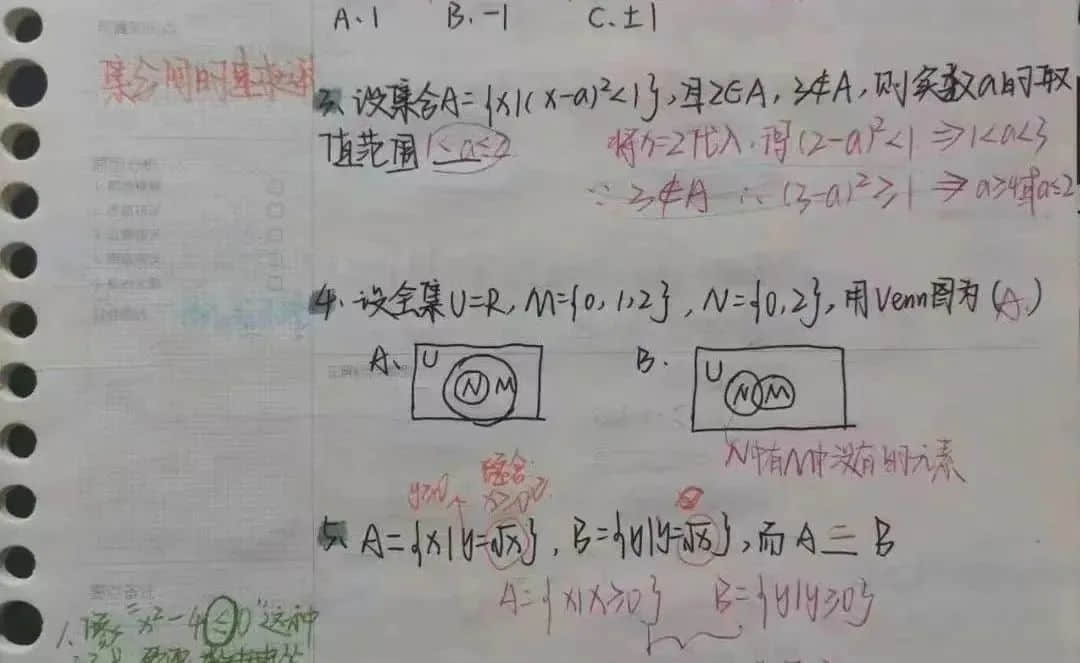 A. 1 B. -1 C. ±1
集合间的基本
3. 设集合A={x|(x-a)²<1},且2∈A, 3∉A, 则实数a的取
值范围1<a≤2
将x=2代入,得(2-a)²<1 ⇒ 1<a<3
∵ 3∉A ∴ (3-a)²≥1 ⇒ a≥4或a≤2
4. 设全集U=R, M={0,1,2}, N={0,2},用Venn图为(A.)
A. U N M B. U N M
N中有M中没有的元素
y≥0 x≥0
5. A={x|y=√x}, B={y|y=√x},而A = B
A={x|x≥0} B={y|y≥0}
1. 像"x²-4≤0"这种